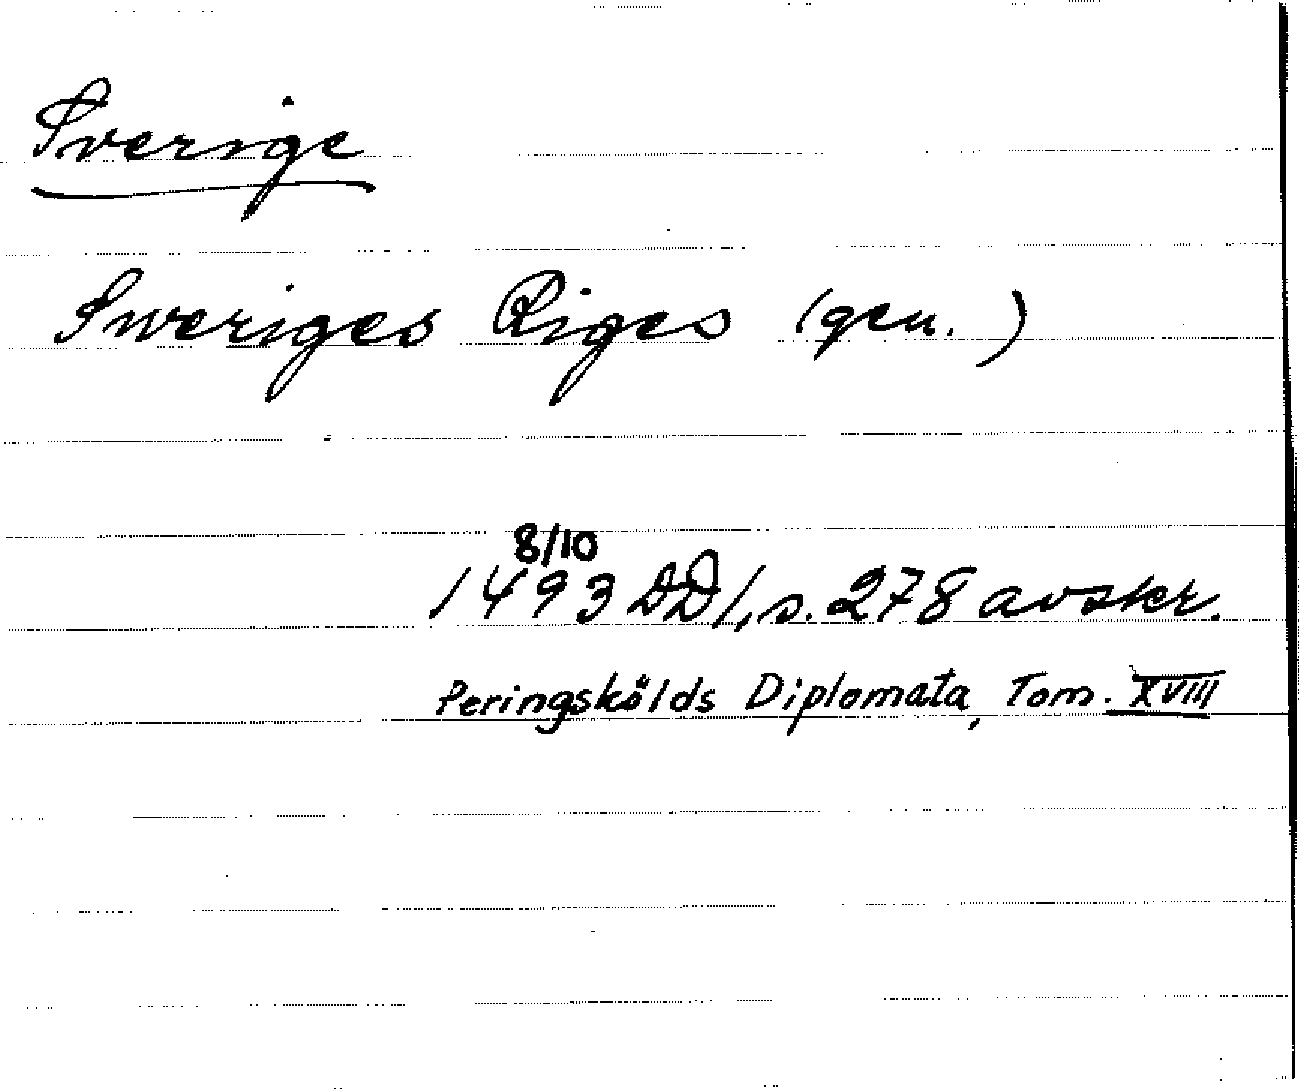 Sverige
Sweriges Riges (gen.)
8/10
1493 DD1, s. 278 avskr.
Peringskölds Diplomata, Tom. XVIII